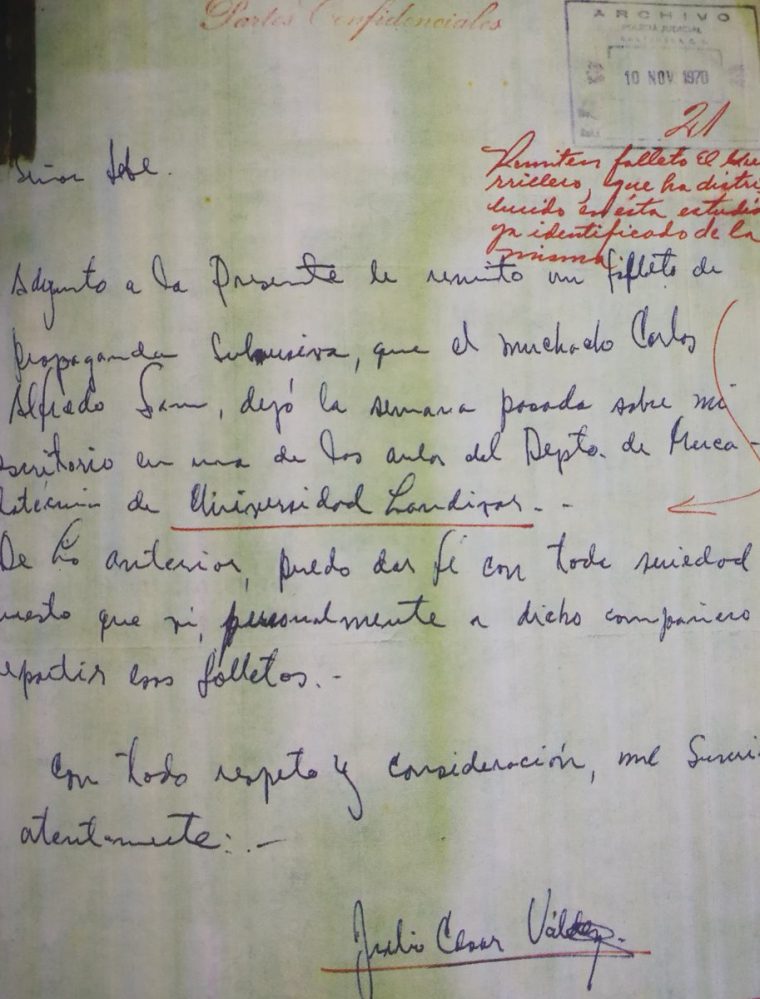 Partes Confidenciales
ARCHIVO
JUDICIAL
10 NOV 1970
21
Remiten folleto El Gue
rrillero, que ha distri
buido en ésta estudia
ya identificado de la
misma
Señor Jefe.
Adjunto a la Presente le remito un folleto de
propaganda Subversiva, que el muchacho Carlos
Alfredo dejó la semana pasada sobre mi
scritorio en una de las aulas del Depto. de Merca-
totecnia de Universidad Landivar.-
De lo anterior, puedo dar fé con toda seriedad
uesto que vi, personalmente a dicho compañero
epartir esos folletos.-
Con todo respeto y consideración, me Suscri
atentamente:.-
Julio Cesar Váldez.